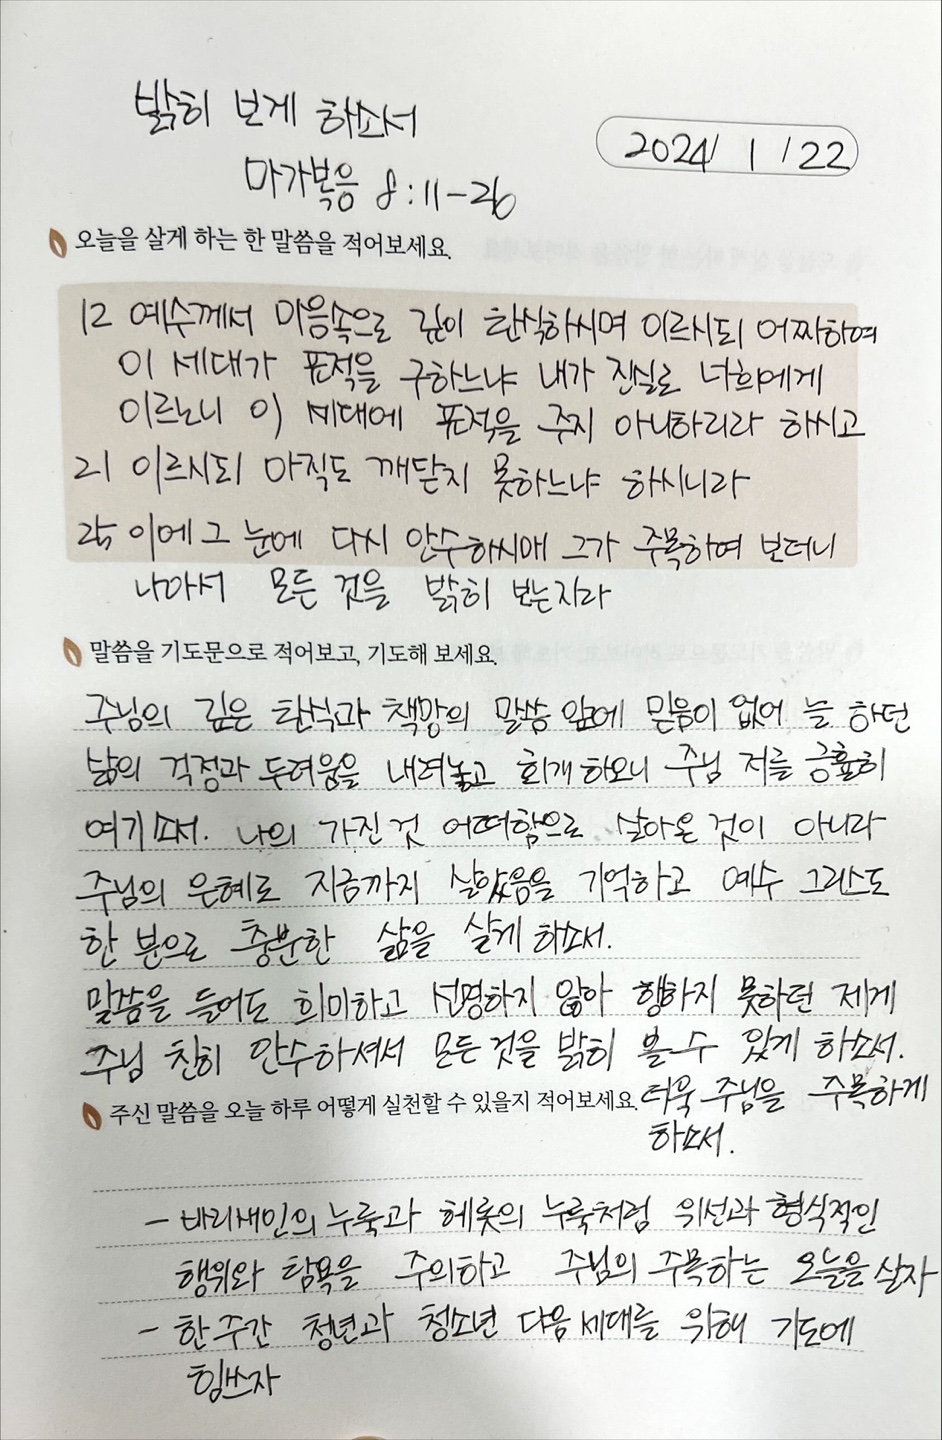 밝히 보게 하소서
2024/ 1 /22
마가복음 8:11-26
오늘을 살게 하는 한 말씀을 적어보세요.
12 예수께서 마음속으로 깊이 탄식하시며 이르시되 어찌하여
이 세대가 표적을 구하느냐 내가 진실로 너희에게
이르노니 이 세대에 표적을 주지 아니하리라 하시고
21 이르시되 아직도 깨닫지 못하느냐 하시니라
25 이에 그 눈에 다시 안수하시매 그가 주목하여 보더니
나아서 모든 것을 밝히 보는지라
말씀을 기도문으로 적어보고, 기도해 보세요.
주님의 깊은 탄식과 책망의 말씀 앞에 믿음이 없어 늘 하던
삶의 걱정과 두려움을 내려놓고 회개하오니 주님 저를 긍휼히
여기소서. 나의 가진 것 어떠함으로 살아온 것이 아니라
주님의 은혜로 지금까지 살았음을 기억하고 예수 그리스도
한 분으로 충분한 삶을 살게 하소서.
말씀을 들어도 희미하고 선명하지 않아 행하지 못하던 제게
주님 친히 안수하셔서 모든 것을 밝히 볼 수 있게 하소서.
더욱 주님을 주목하게
하소서.
주신 말씀을 오늘 하루 어떻게 실천할 수 있을지 적어보세요.
- 바리새인의 누룩과 헤롯의 누룩처럼 위선과 형식적인
행위와 탐욕을 주의하고 주님의 주목하는 오늘을 살자
- 한 주간 청년과 청소년 다음 세대를 위해 기도에
힘쓰자